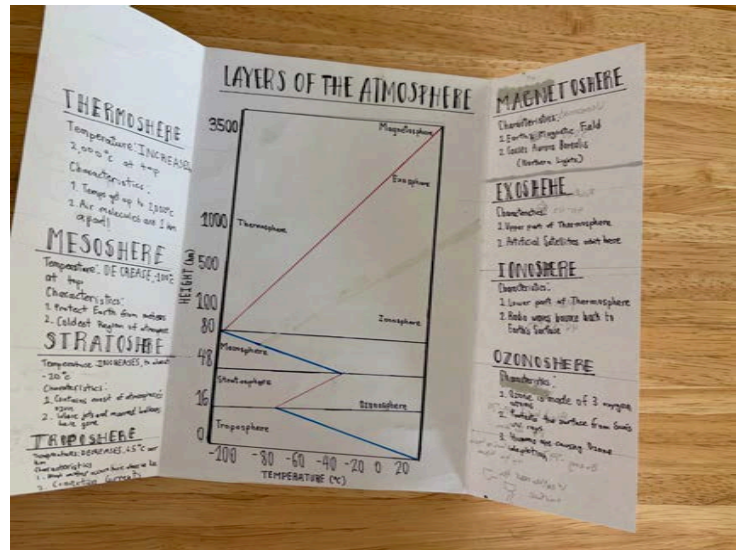 THERMOSHERE
Temperature: INCREASES,
2,000°C at top
Characteristics:
1. Temps get up to 2,000°C
2. Air molecules are 1 km
apart!
MESOSHERE
Temperature: DECREASE, -100°C
at top
Characteristics:
1. Protect Earth from meteors
2. Coldest Region of
STRATOSHRE
Temperature INCREASES, to about
-20°C
Characteristics:
1. Contains most of atmosphere's
ozone
2. Where jets and manned balloons
have gone
TROPOSHERE
Temperatures: DECREASES, 6.5°C
km
Characteristics
1.
2. Convection Currents
LAYERS OF THE ATMOSPHERE
HEIGHT (km)
3500
1000
500
100
80
48
16
0
Magnetosphere
Exosphere
Thermosphere
Ionosphere
Mesosphere
Stratosphere
Ozonosphere
Troposphere
-100 -80 -60 -40 -20 0 20
TEMPERATURE (°C)
MAGNETOSHERE
Characteristics:
1. Earth's Magnetic Field
2. Causes Aurora Borealis
(Northern Lights)
EXOSHEHE
Characteristics:
1. Upper part of Thermosphere
2. Artificial Satellites orbit here
IONOSHERE
Characteristics:
1. Lower part of Thermosphere
2. Radio waves bounce back to
Earth's Surface
OZONOSHERE
Characteristics:
1. Ozone is made of 3 oxygen
atoms
2. Protects the surface from Sun's
rays
3. Humans are causing Ozone
depletion